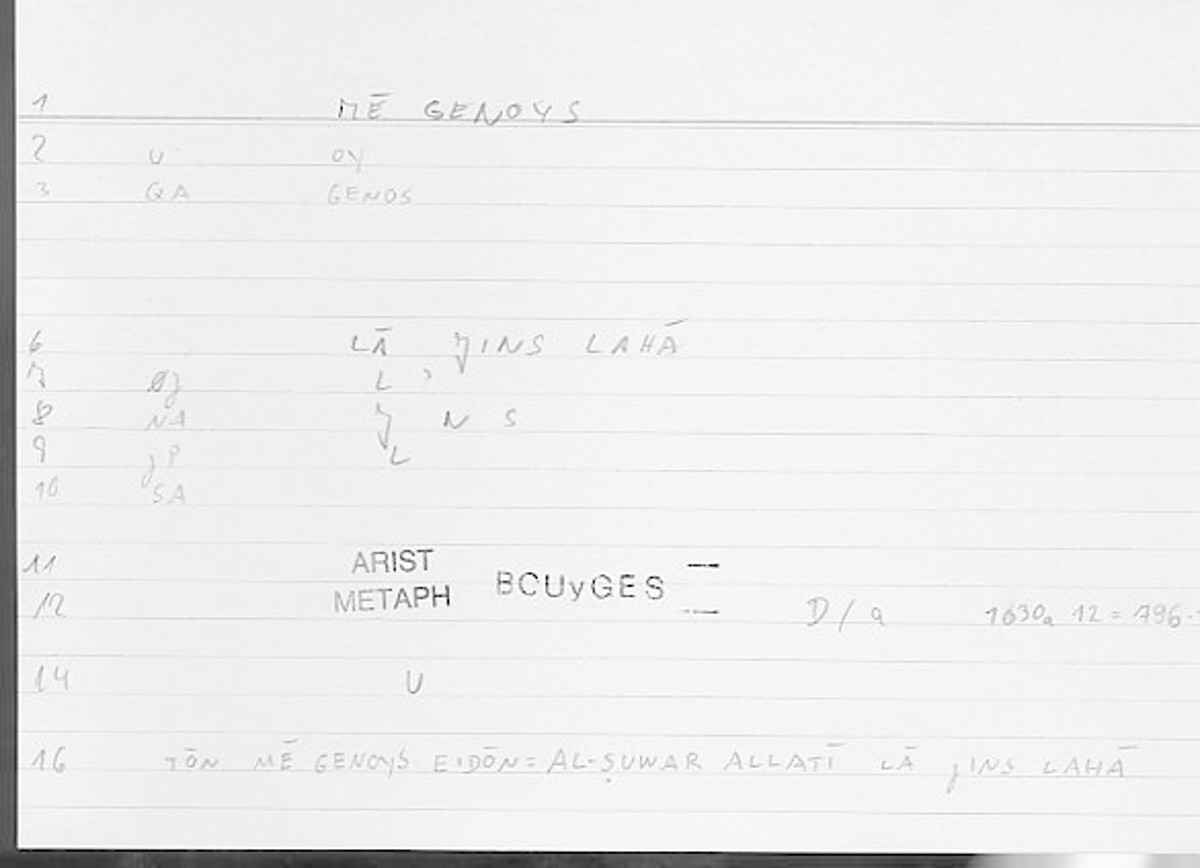 1 MĒ GENOYS
2 U OY
3 QA GENOS
6 LĀ JINS LAHĀ
7 L ʾ
8 NA J N S
9 jP L
10 SA
11 ARIST
12 METAPH BCUyGES D/a 1030a 12 = 796.
14 U
16 TŌN MĒ GENOYS EIDŌN = AL-ṢUWAR ALLATĪ LĀ JINS LAHĀ